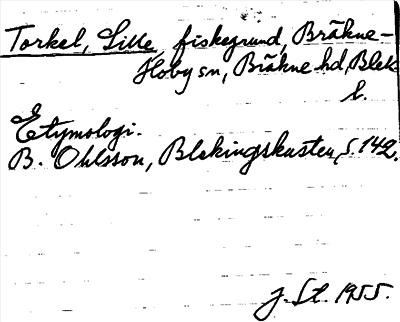 Torkel, Lille, fiskegrund, Bräkne-
Hoby sn, Bräkne hd, Blek.
l.
Etymologi.
B. Ohlsson, Blekingskusten, s. 142.
J. St. 1955.